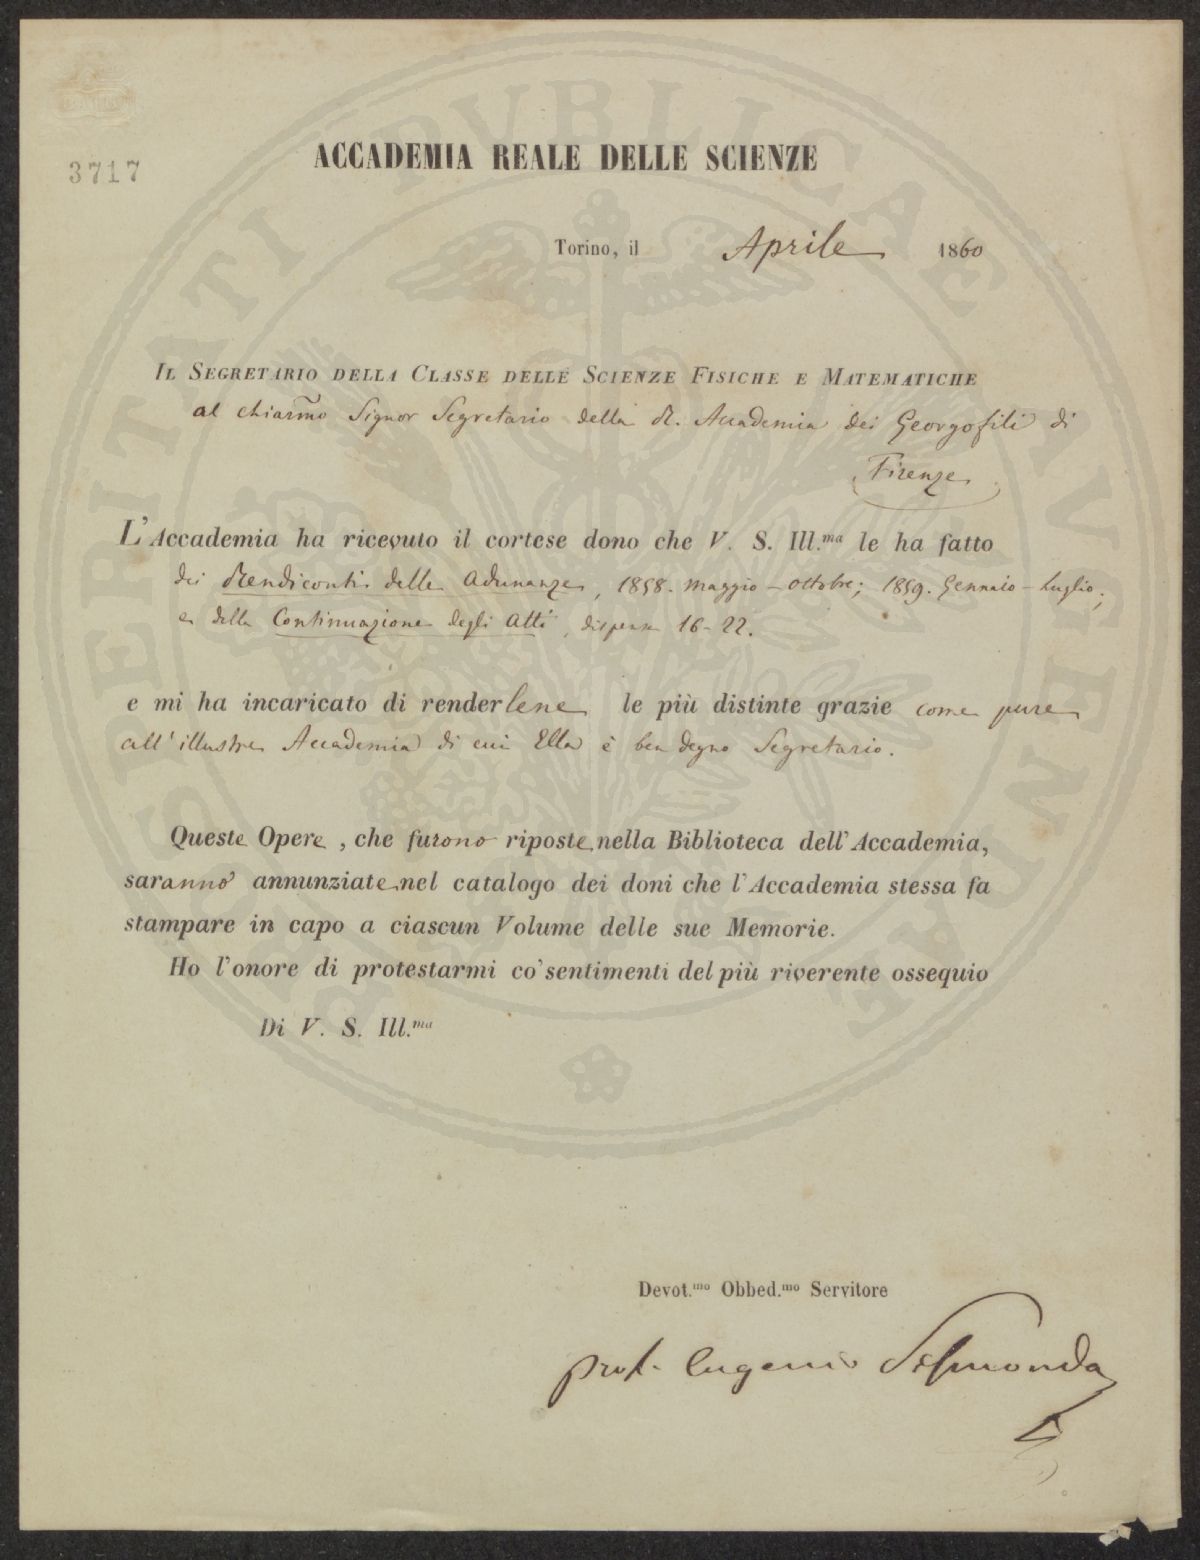 3717
ACCADEMIA REALE DELLE SCIENZE
Torino, il Aprile 1860
IL SEGRETARIO DELLA CLASSE DELLE SCIENZE FISICHE E MATEMATICHE
al chiarmo Signor Segretario della R. Accademia dei Georgofili di
Firenze
L'Accademia ha ricevuto il cortese dono che V. S. Ill.ma le ha fatto
dei Rendiconti delle Adunanze, 1858. Maggio - Ottobre; 1859. Gennaio - Luglio;
e della Continuazione degli Atti, dispense 16-22.
e mi ha incaricato di renderlene le più distinte grazie come pure
all'illustre Accademia di cui Ella è ben degno Segretario.
Queste Opere, che furono riposte nella Biblioteca dell'Accademia,
saranno annunziate nel catalogo dei doni che l'Accademia stessa fa
stampare in capo a ciascun Volume delle sue Memorie.
Ho l'onore di protestarmi co' sentimenti del più riverente ossequio
Di V. S. Ill.ma
Devot.mo Obbed.mo Servitore
prof. Eugenio Sismonda
PROSPERITATI PVBLICAE AVGENDAE